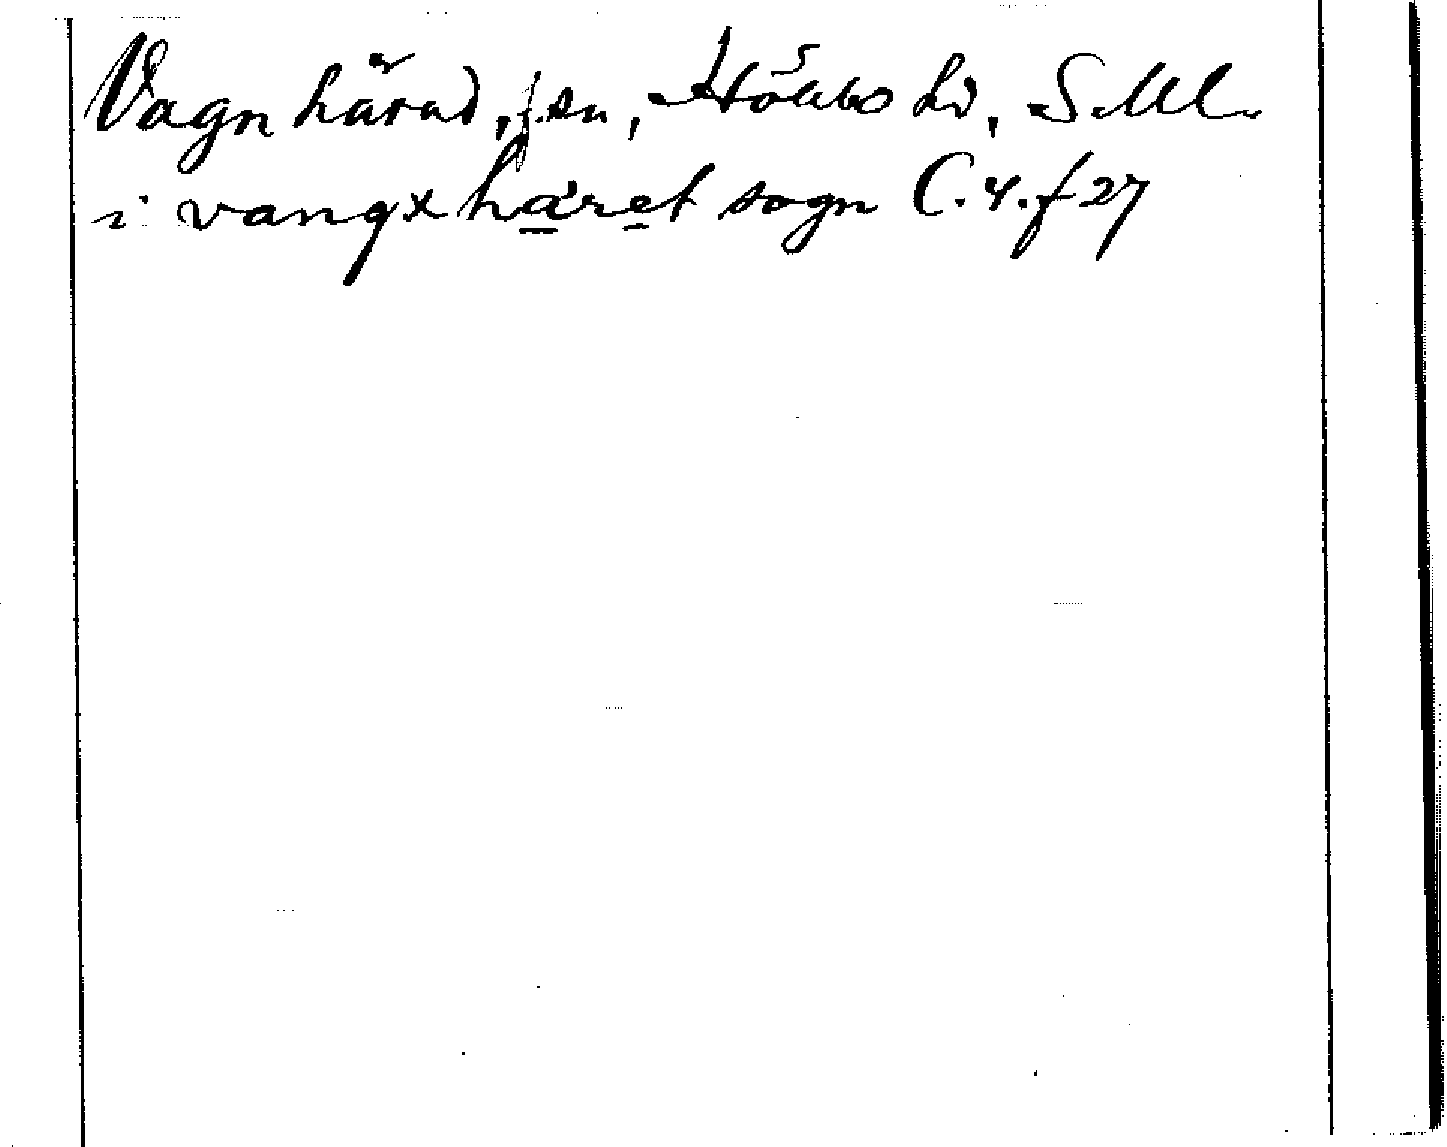 Vagnhärad, sn, Hölebo hd, Sdl.
i vangxhäret sogn C.4.f 27